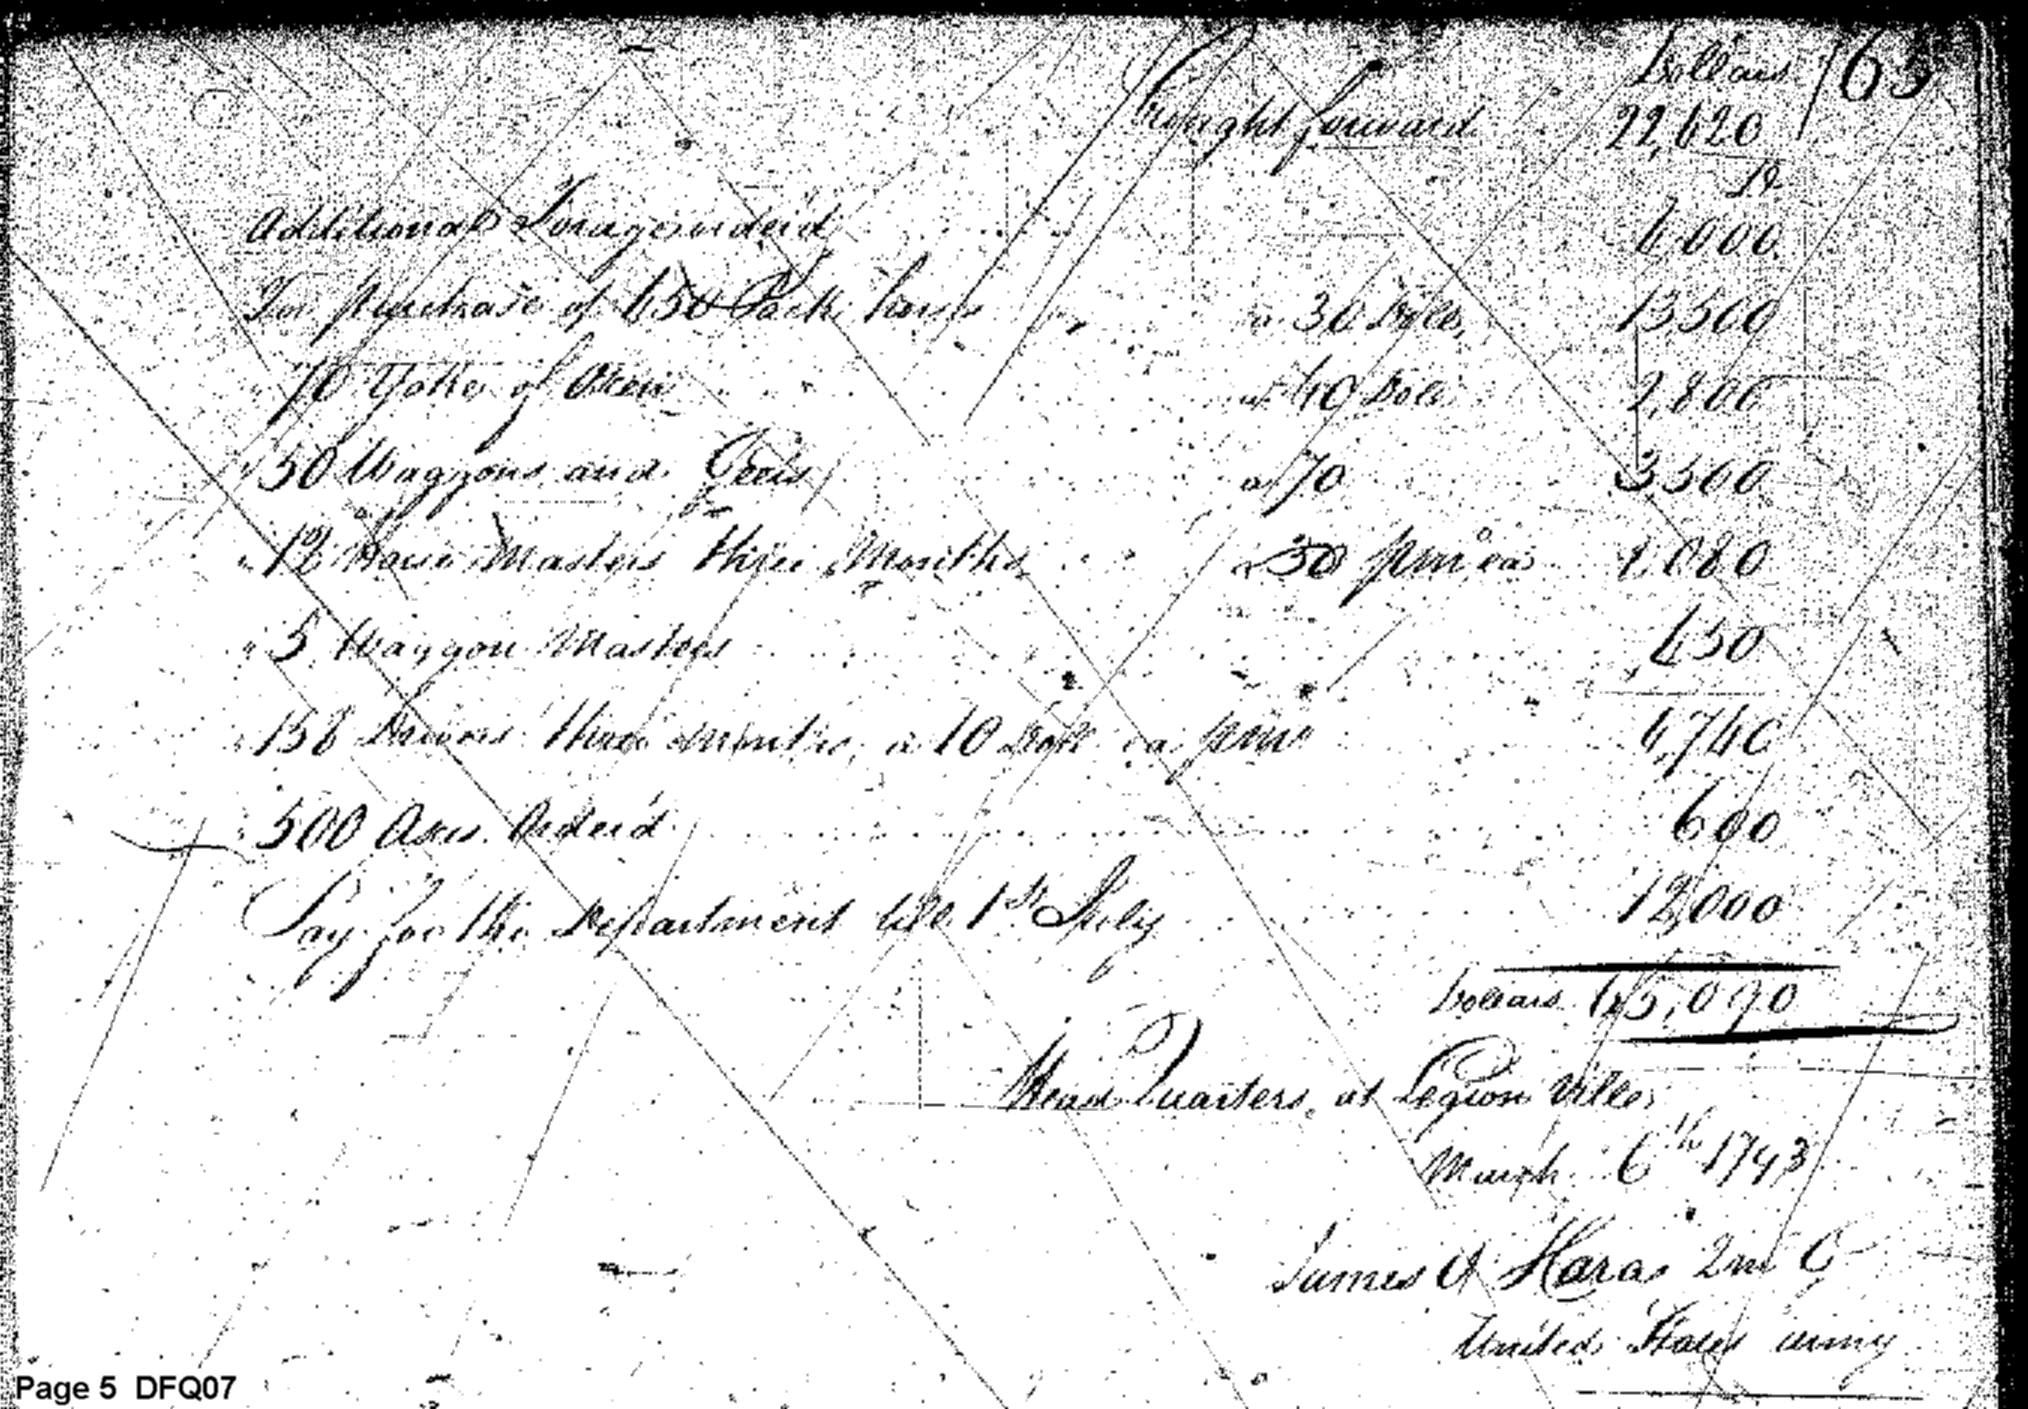 Dollars 65
Brought forward 22,420
Additional Forage orderd 4000
For purchase of 450 Pack horses a 30 Dolls, 13500
" 70 Yoke of Oxen a 40 Dolls 2,800
" 50 Waggons and Geers a 70 3,500
" 12 Horse Masters three Months a 30 pm ea 1,080
" 5 Waggon Masters 450
" 158 Drivers three months, a 10 Dolls ea pm 4,740
" 500 Axes Orderd 600
Pay for the Department till 1st July 12,000
Dollars 65,090
Head Quarters, at Legion Ville,
March 6th 1793
James O Hara 2m G
United States army
Page 5 DFQ07